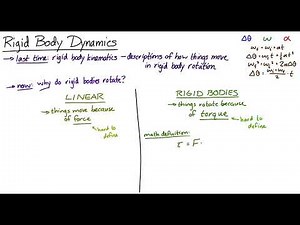 Rigid Body Dynamics
→ last time: rigid body kinematics - descriptions of how things move
in rigid body rotation.
Δθ ω α
ω₂ = ω₁ + αt
Δθ = ω₁t + ½αt²
ω₂² = ω₁² + 2αΔθ
Δθ = (ω₁+ω₂)/2 · t
→ now: why do rigid bodies rotate?
LINEAR
→ things move because
of force
hard to
define
RIGID BODIES
→ things rotate because
of torque
hard to
define
math definition:
τ = F